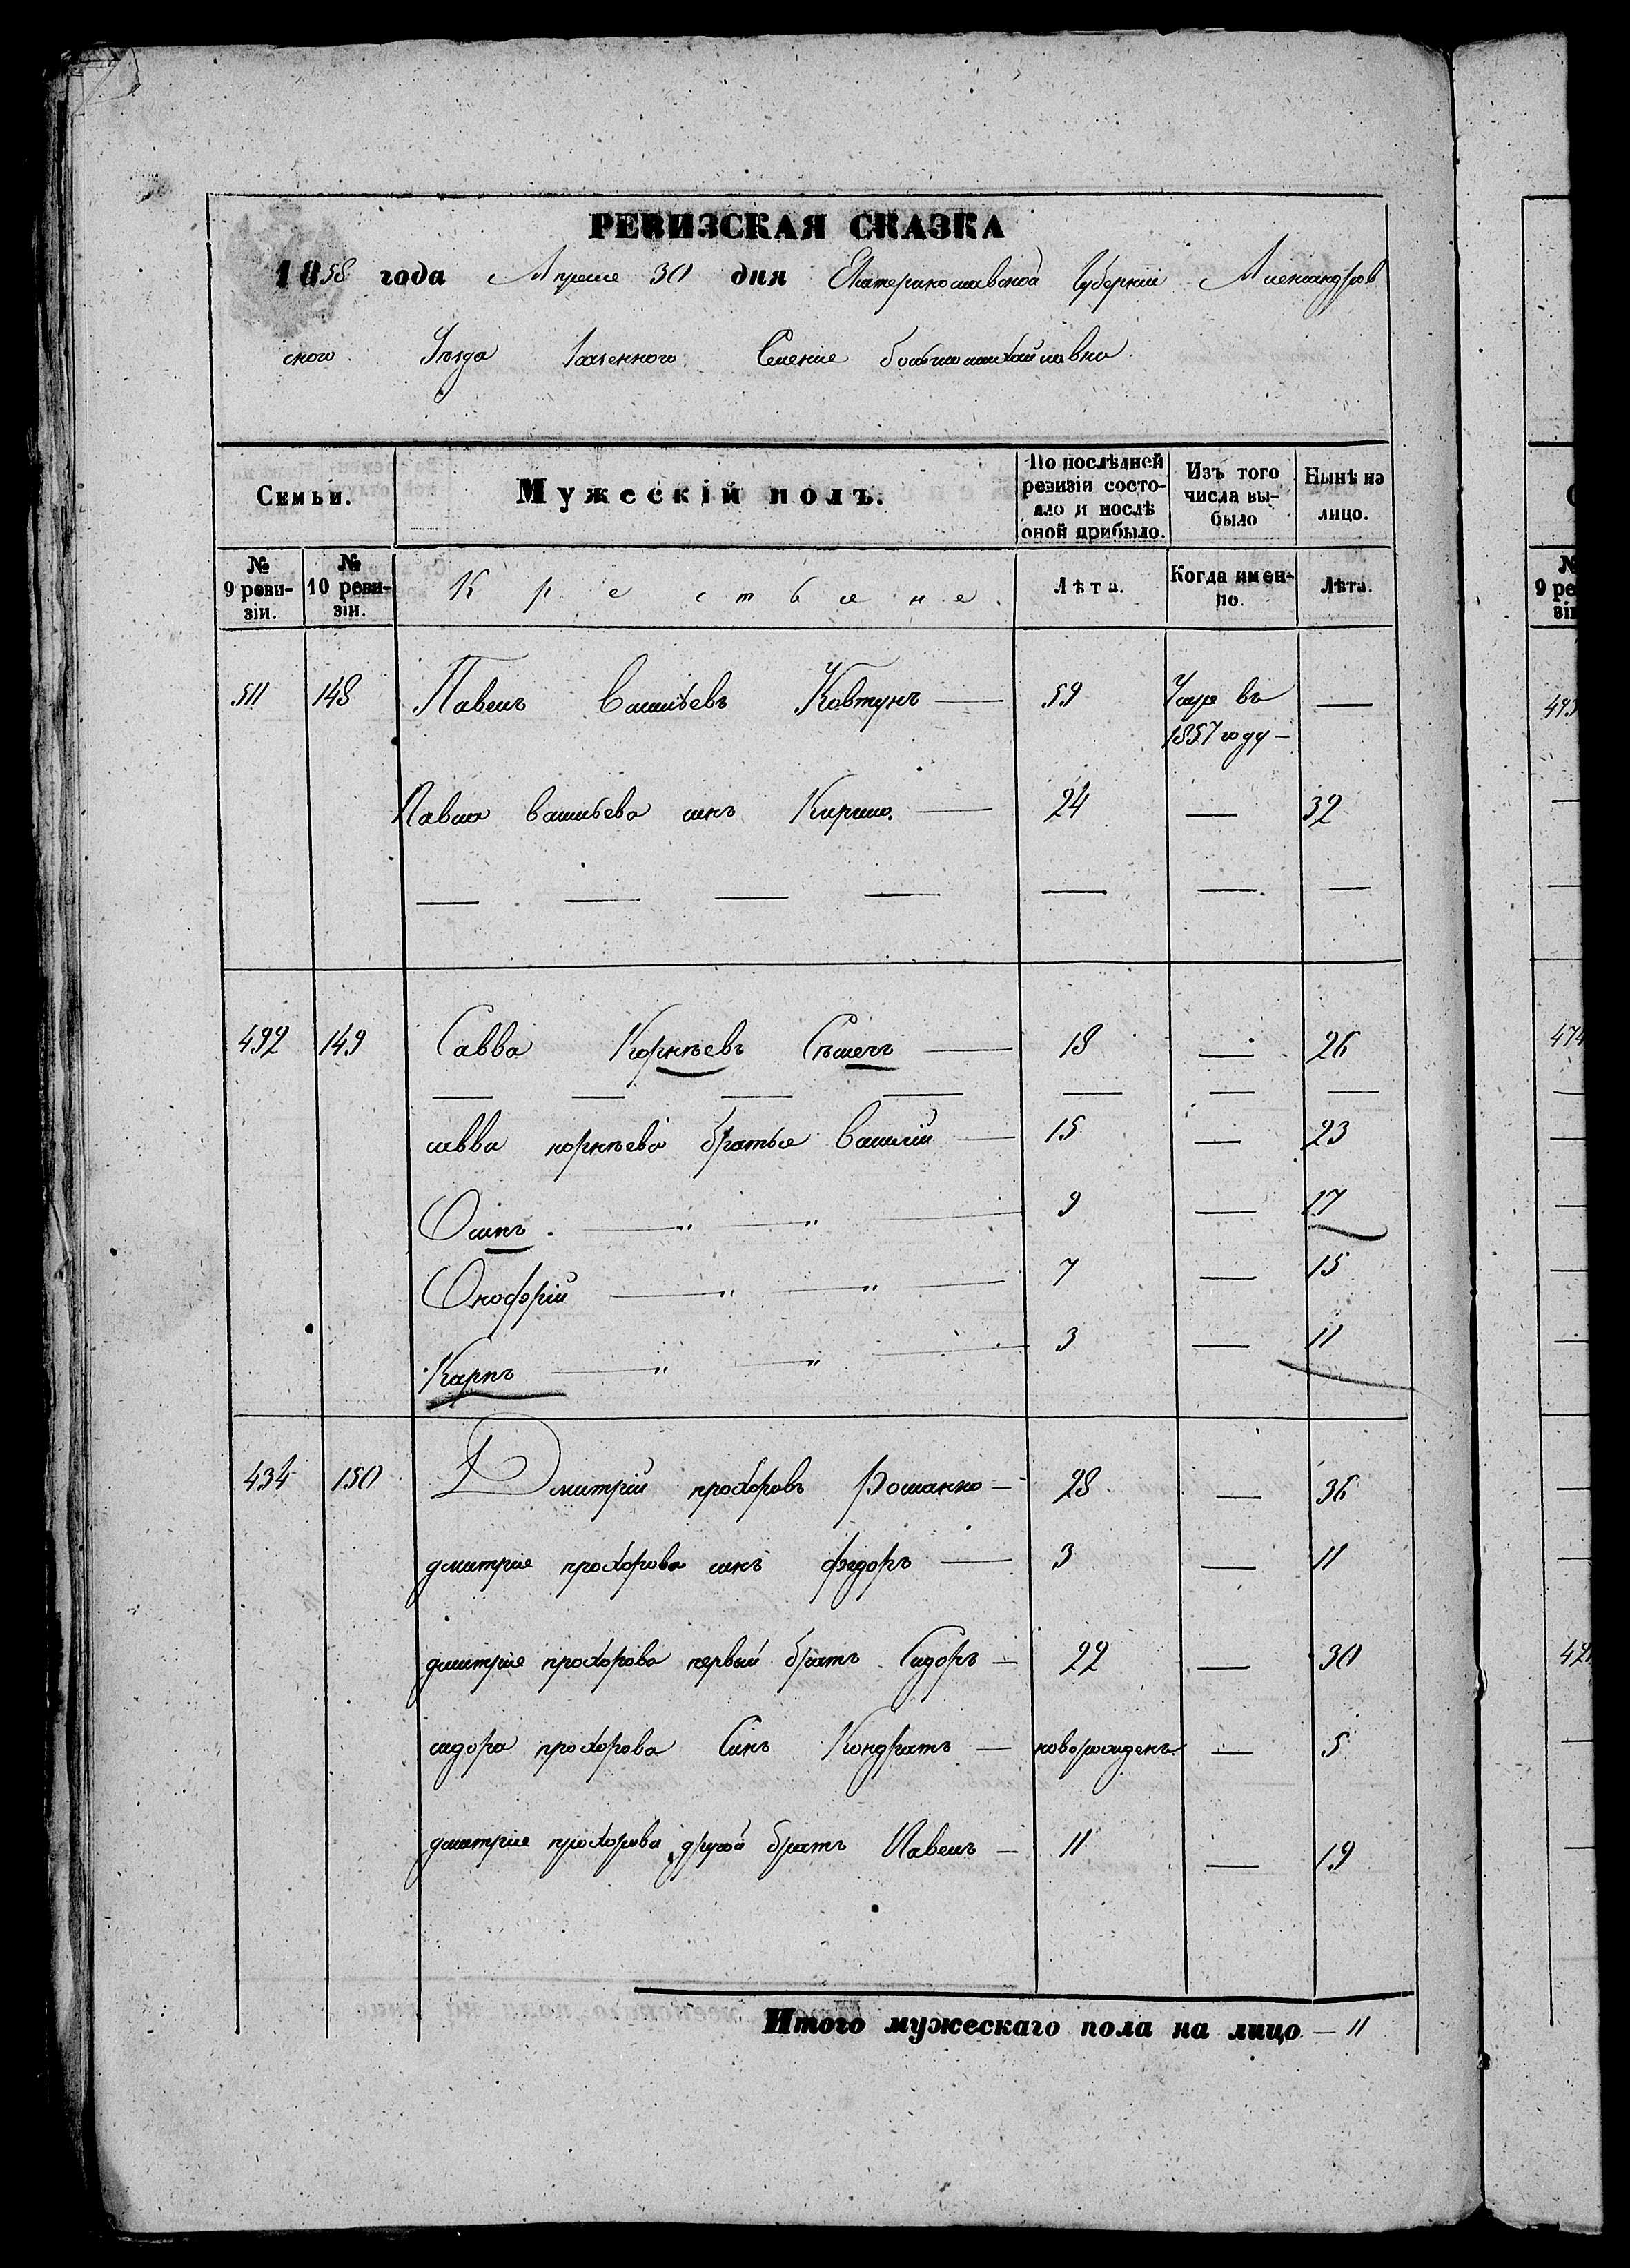 РЕВИЗСКАЯ СКАЗКА
1858 года Апреля 30 дня Екатеринославской Губернии Александров
ского Уезда Казенного Селения большомихайловка
Семьи.
Мужескій полъ.
По послѣдней ревизіи состо-
яло и послѣ
оной прибыло.
Изъ того
числа вы-
было
Нынѣ на
лицо.
№
9 реви-
зіи.
№
10 реви-
зіи.
Крестьяне.
Лѣта.
Когда имен-
но.
Лѣта.
511 148 Павелъ Васильевъ Ковтунъ — 59 Умре въ —
1857 году —
Павла Васильева синъ Кирило. — 24 — 32
— — — — — — —
492 149 Савва Корнѣевъ — 18 — 26
— — — — — — —
савва корнѣева братья Василій — 15 — 23
Осипъ . — " — " — 9 — 17
Онофрій — " — " — 7 — 15
Карпъ — " — " — 3 — 11
434 150 Дмитрій прохоровъ Романко — 28 — 36
дмитрия прохорова синъ федоръ — 3 — 11
дмитрия прохорова первый братъ Сидоръ — 22 — 30
сидора прохорова Синъ Кондратъ — новорожденъ — 5
дмитрия прохорова другой братъ Павелъ — 11 — 19
Итого мужескаго пола на лицо — 11
№
9 ре
зіи
474